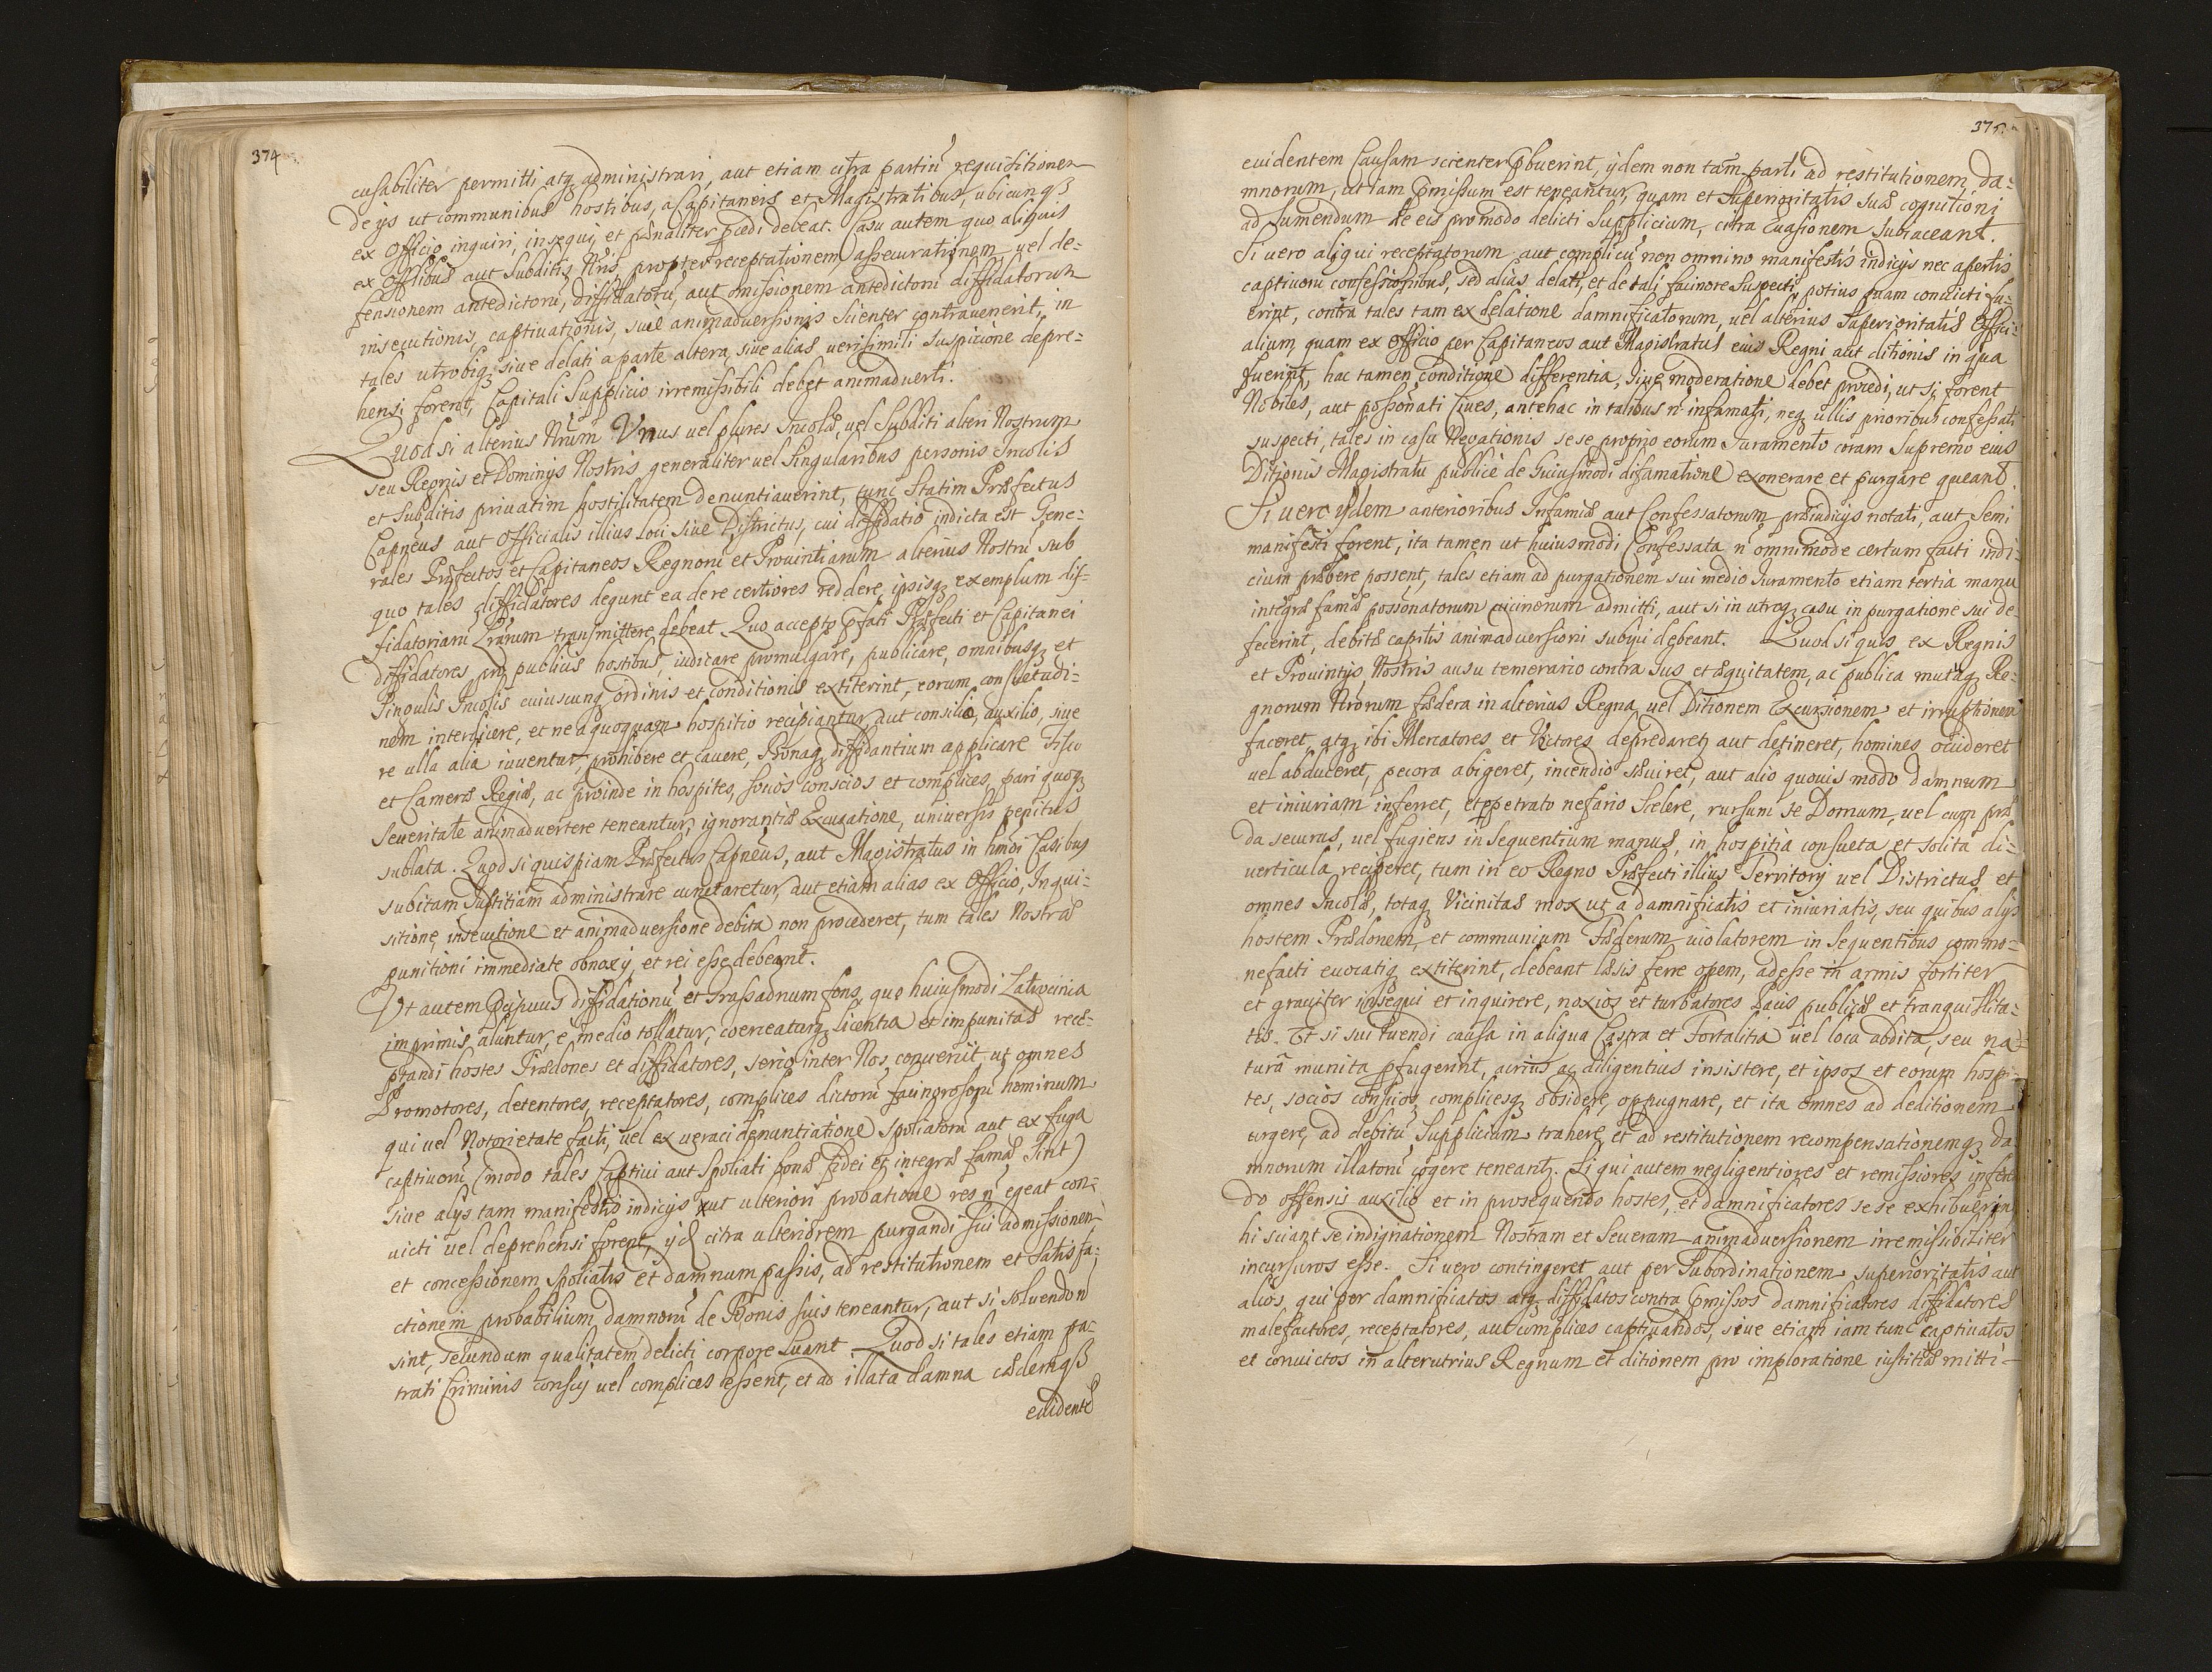 374
cusabiliter permitti atq administrari, aut etiam citra partiũ requisitionem
De ijs ut communibus hostibus, a Capitaneis et Magistratibus, ubicunq
ex Officio inquiri, insequi, et poenaliter pcedi debeat. Casu autem quo aliquis
ex Offlibus aut Subditis Nris, propter receptationem, assecurationem, uel de=
fensionem antedictorũ, diffidatorũ, aut omissionem antedictorũ diffidatorum
insecutionis, captiuationis, siue animaduersionis Scienter contrauenerit, in
tales utrobiq siue delati a parte altera, siue alias uerisimili Suspicione depre=
hensi forent, Capitali Supplicio irremissibili debet animaduerti.
Quod si alterius Nrũm Vnus uel plures Incolæ, uel Subditi alteri Nostrum
seu Regnis et Dominijs Nostris generaliter uel Singularibus personis Incolis
et Subditis priuatim hostilitatem denuntiauerint, tunc Statim Præfectus
Capneus aut Officialis illius Loci siue Districtus, cui diffidatio indicta est Gene=
rales Præfectos et Capitaneos Regnorũ et Prouintiarum alterius Nostrũ sub
quo tales diffidatores degunt ea de re certiores reddere, ipsisq exemplum dif=
fidatoriarũ Lrarum transmittere debeat. Quo accepto pfati Præfecti et Capitanei
Diffidatores pro publicis hostibus iudicare promulgare, publicare, omnibusq et
Singulis Incolis cuiuscunq ordinis et conditionis extiterint, eorum consuetudi=
nem interdicere, et ne a quoquam hospitio recipiantur, aut consilio, auxilio, siue
re ulla alia iuuentur, prohibere et cauere, Bonaq diffidantium applicare Fisco
et Cameræ Regiæ, ac proinde in hospites, socios conscios et complices, pari quoq
Seueritate animaduertere teneantur, ignorantiæ Excusatione, uniuersis penitus
sublata. Quod si quispiam Præfectus Capneus, aut Magistratus in hmõi Casibus
subitam Iustitiam administrare cunctaretur, aut etiam alias ex Officio, Inqui=
sitione, insecutione et animaduersione debita non procederet, tum tales Nostræ
punitioni immediate obnoxij, et rei esse debeant.
Vt autem pcipuus diffidationũ et Grassadnum fons, quo huiusmodi Latrocinia
imprimis aluntur, e medio tollatur, coerceaturq licentia et impunitas rece=
ptandi hostes Prædones et diffidatores, serio inter Nos conuenit, ut omnes
Promotores, detentores, receptatores, complices dictorũ facinorosorũ hominum
qui uel Notorietate facti, uel ex ueraci denuntiatione Spoliatorũ aut ex fuga
captiuorũ (modo tales Captiui aut Spoliati bonæ fidei et integræ famæ Sint)
siue alijs tam manifestis indicijs ut ulteriori probatione res nõ egeat con=
uicti uel deprehensi forent, ijd citra ulteriorem purgandi sui admissionem
et concessionem Spoliatis et damnum passis, ad restitutionem et Satisfa=
ctionem probabilium damnorũ de Bonis suis teneantur, aut si soluendo nõ
sint, Secundum qualitatem delicti corpore luant. Quod si tales etiam pa=
trati Criminis conscij uel complices essent, et ad illata damna cædemq
euidente
375.
euidentem Causam scienter pbuerint, ijdem non tam parti ad restitutionem da=
mnorum, ut iam pmissum est teneantur, quam et Superioritatis suæ cognitioni
ad Sumendum de eis pro modo delicti Supplicium, citra Euasionem Subiaceant.
Si uero aliqui receptatorum aut complicũ non omnino manifestis indicijs nec apertis
captiuorũ confessionibus, sed alias delati, et de tali facinore Suspecti potius quam conuicti fu=
erint, contra tales tam ex delatione damnificatorum, uel alterius Superioritatis Offici=
alium, quam ex Officio per Capitaneos aut Magistratus eius Regni aut ditionis in qua
fuerint, hac tamen conditione differentia, siue moderatione debet procedi, ut si forent
Nobiles, aut possonati Ciues, antehac in talibus nõ infamati, neq ullis prioribus confessati
suspecti, tales in casu Negationis sese proprio eorum Iuramento coram Supremo eius
Ditionis Magistratu publicè de huiusmodi difamatione exonerare et purgare queant.
Si uero ijdem anterioribus Infamiæ aut Confessatorum præiudicijs notati, aut Semi
manifesti forent, ita tamen ut huiusmodi Confessata nõ omnimode certum facti indi=
cium præbere possent, tales etiam ad purgationem sui medio Iuramento etiam tertia manu
integræ famæ possonatorum uicinorum admitti, aut si in utroq casu in purgatione sui de=
fecerint, debitæ capitis animaduersioni subijci debeant. Quod si quis ex Regnis
et Prouintijs Nostris ausu temerario contra Ius et æquitatem, ac publica mutuaq Re=
gnorum Nrorum fœdera in alterius Regna, uel Ditionem Excursionem et irruptionem
faceret, atq ibi Mercatores et Victores depredaret aut detineret, homines occideret
uel abduceret, pecora abigeret, incendio sæuiret, aut alio quouis modo damnum
et iniuriam inferret, et ppetrato nefario Scelere, rursum se Domum, uel cum præ=
da securus, uel fugiens insequentium manus, in hospitia consueta et solita di=
uerticula, reciperet, tum in eo Regno Præfecti illius Territorij uel Districtus et
omnes Incolæ, totaq Vicinitas mox ut a damnificatis et iniuriatis, seu quibus alijs
hostem Prædonem et communium Fœderum uiolatorem insequentibus commo=
nefacti euocatiq extiterint, debeant læsis ferre opem, adesse in armis fortiter
et grauiter insequi et inquirere, noxios et turbatores Pacis publicæ et tranquillita=
tis. Et si sui tuendi causa in aliqua Castra et Fortalitia uel loca abdita, seu na=
tura munita pfugerint, acrius ac diligentius insistere, et ipsos et eorum hospi=
tes, socios conscios complicesq obsidere, oppugnare, et ita omnes ad deditionem
urgere, ad debitũ Supplicium trahere, et ad restitutionem recompensationemq da=
mnorum illatorũ cogere teneant. Si qui autem negligentiores et remissiores infere
do offensis auxilio et in prosequendo hostes, et damnificatores sese exhibuerint
hi sciant se indignationem Nostram et Seueram animaduersionem irremissibiliter
incursuros esse. Si uero contingeret aut per Subordinationem superioritatis aut
alios, qui per damnificatos atq diffidatos contra pmissos damnificatores diffidatores
malefactores, receptatores, aut complices captiuandos, siue etiam iam tunc captiuatos
et conuictos in alterutrius Regnum et ditionem pro imploratione iustitiæ mitti=